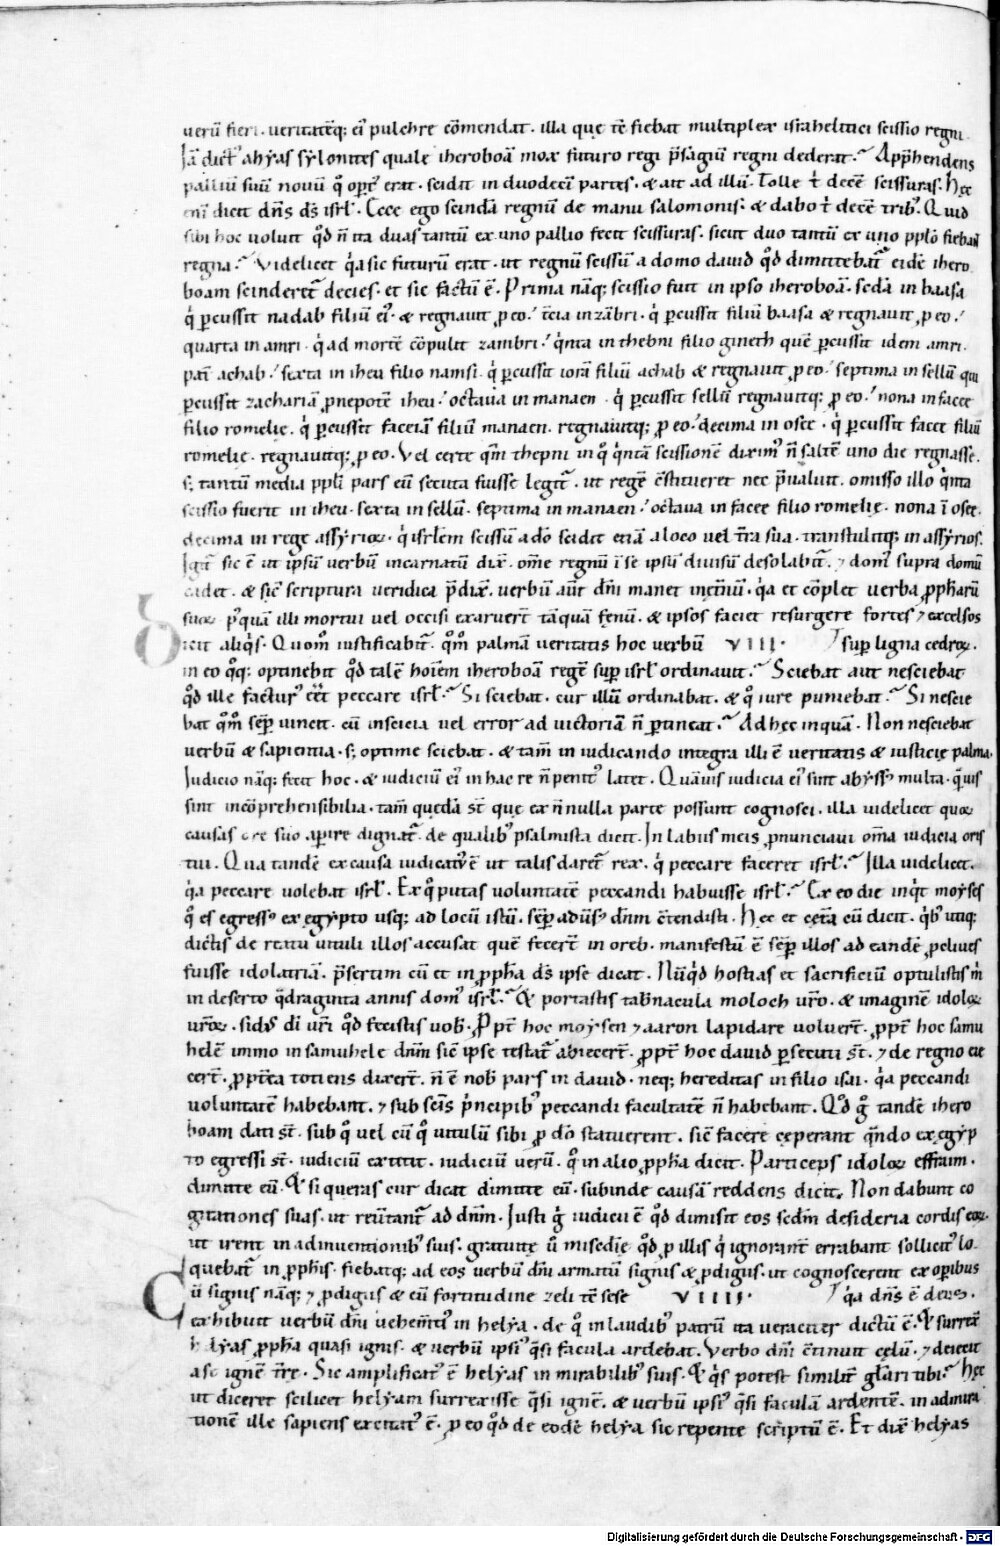 uerũ fieri. ueritatẽq; ei᷒ pulchre cõmendat. illa que tẽ fiebat multiplex israhelitici scissio regni.
Iã dict᷒ ahyas sylonites quale iheroboã mox futuro regi p̃sagiũ regni dederat. App̃hendens
palliũ suũ nouũ q̊ op̃t᷒ erat. scidit in duodecĩ partes. & ait ad illũ. Tolle t̾ decẽ scissuras. Hęc
enĩ dicit dñs ds̃ isrl̃. Ecce ego scindã regnũ de manu salomonis. & dabo t̾ decẽ trib᷒. Quid
sibi hoc uoluit qd̃ ñ ita duas tantũ ex uno pallio fecit scissuras. sicut duo tantũ ex uno pplo fiebant
regna. Videlicet q̾a sic futurũ erat. ut regnũ scissũ a domo dauid qd̃ dimittebat᷒ eidẽ ihero
boam scinderet᷒ decies. et sic factũ ẽ. Prima nãq; scissio fuit in ipso iheroboã. sc̃da in baasa
q̾ p̱cussit nadab filiũ ei᷒. & regnauit ꝓ eo. t̃cia in zãbri. q̾ p̱cussit filiũ baasa & regnauit ꝓ eo.
quarta in amri. q̾ ad mortẽ cõpulit zambri. q̾nta in thebni filio gineth quẽ p̱cussit idem amri.
pat̃ achab. sexta in iheu filio namsi. q̾ p̱cussit iorã filiũ achab & regnauit ꝓ eo. septima in sellũ qui
p̱cussit zachariã ꝓnepotẽ iheu. octaua in manaen. q̾ p̱cussit sellũ regnauitq; ꝓ eo. nona in facee
filio romelie. q̾ p̱cussit faceiã filiũ manaen. regnauitq; ꝓ eo. decima in osee. q̾ p̱cussit facee filiũ
romelie. regnauitq; ꝓ eo. Vel certe qm̃ thepni in q̊ q̾ntã scissionẽ dixim᷒ ñ saltẽ uno die regnasse.
s; tantũ media ppli pars eũ secuta fuisse legit᷒. ut regẽ c̃stitueret nec p̃ualuit. omisso illo q̾nta
scissio fuerit in iheu. sexta in sellũ. septima in manaen. octaua in facee filio romelię. nona ĩ osee.
decima in rege assyrioꝝ. q̾ isrl̃em scissũ a dõ scidit etiã a loco uel t̃ra sua. transtulitq; in assyrios.
Igit᷒ sic ẽ ut ipsũ uerbũ incarnatũ dix̃. om̃e regnũ ĩ se ipsũ diuisũ desolabit᷒. ⁊ dom᷒ supra domũ
cadet. & sic̃ scriptura ueridica p̃dix̃. uerbũ aut̃ dñi manet in et̃nũ. q̾a et cõplet uerba ꝓph̃arũ
suoꝝ p᷒quã illi mortui uel occisi exaruert̃ tãquã fenũ. & ipsos faciet resurgere fortes ⁊ excelsos
Dicit aliq̾s. Quom̊ iustificabit᷒. qm̊ palmã ueritatis hoc uerbũ VIII. sup ligna cedroꝝ.
in eo q̊q; optinebit qd̃ talẽ hoĩem iheroboã regẽ sup̱ isrl̃ ordinauit. Sciebat aut nesciebat
qd̃ ille factur᷒ eẽt peccare isrl̃. Si sciebat. cur illũ ordinabat. & q̊ iure puniebat. Si nescie
bat qm̊ semp̱ uincit. cũ inscicia uel error ad uictoriã ñ p̱tineat. Ad hęc inquã. Non nesciebat
uerbũ & sapientia. s; optime sciebat. & tam̃ in iudicando integra illi ẽ ueritatis & iusticię palma.
Iudicio nãq; fecit hoc. & iudiciũ ei᷒ in hac re ñ penit᷒ latet. Quãuis iudicia ei᷒ sint abyss᷒ multa. q̃uis
sint incõprehensibilia. tam̃ quedã st̃ que ex ñnulla parte possunt cognosci. illa uidelicet quoꝝ
causas ore suo ap̱ire dignat᷒. de qualib᷒ psalmista dicit. In labiis meis ꝓnunciaui om̃a iudicia oris
tui. Qua tandẽ ex causa iudicatũ ẽ ut talis daret᷒ rex. q̾ peccare faceret isrl̃. Illa uidelicet.
q̾a peccare uolebat isrl̃. Ex q̊ putas uoluntatẽ peccandi habuisse isrl̃. Ex eo die inq̾t moyses
q̊ es egress᷒ ex egypto usq; ad locũ istũ. semp̱ adũs᷒ dñm c̃tendisti. Hęc et cęt̃a cũ dicit. q̾b᷒ utiq;
dictis de reatu uituli illos accusat quẽ fecert̃ in oreb. manifestũ ẽ semp̱ illos ad eandẽ ꝓcliues
fuisse idolatriã. p̃sertim cũ et in ꝓph̃a ds̃ ipse dicat. Nũq̾d hostias et sacrificiũ optulistis m̾
in deserto q̃draginta annis dom᷒ isrl̃. Et portastis tab̃nacula moloch ur̃o. & imaginẽ idoloꝝ
ur̃oꝝ. sid᷒ di̾ ur̃i qd̃ fecistis uob̃. Ppt̃ hoc moysen ⁊ aaron lapidare uoluert̃. ꝓpt̃ hoc samu
helẽ immo in samuhele dñm sic̃ ipse testat᷒ abiecert̃. ꝓpt̃ hoc dauid p̱secuti st̃. ⁊ de regno eie
cert̃. ꝓpt̃ea totiens dixert̃. ñ ẽ nob̃ pars in dauid. neq; hereditas in filio isai. q̾a peccandi
uoluntatẽ habebant. ⁊ sub sc̃is p̾ncipib᷒ peccandi facultatẽ ñ habebant. Qd̃ g̊ tandẽ ihero
boam dati st̃. sub q̊ uel cũ q̊ uitulũ sibi ꝓ dõ statuerent. sic̃ facere cęperant q̃ndo ex egyp
to egressi st̃. iudiciũ extitit. iudiciũ uerũ. q̊ in alio ꝓph̃a dicit. Particeps idoloꝝ effraim.
dimitte eũ. Et si queras cur dicat dimitte eũ. subinde causã reddens dicit. Non dabunt co
gitationes suas. ut reũtant᷒ ad dñm. Iusti g̾ iudicii ẽ qd̃ dimisit eos sc̃dm desideria cordis eoꝝ.
ut irent in adinuentionib᷒ suis. gratuitę ũ mis̃c̃dię qd̃ p̱ illis q̾ ignorant̃ errabant sollicit᷒ lo
quebat᷒ in ꝓph̃is. fiebatq; ad eos uerbũ dñi armatũ signis & ꝓdigiis. ut cognoscerent ex op̱ibus
Cũ signis nãq; ⁊ ꝓdigiis & cũ fortitudine zeli tẽ sese VIIII. q̾a dñs ẽ deus.
exhibuit uerbũ dñi uehem̃t᷒ in helya. de q̊ in laudib᷒ patrũ ita ueraciter dictũ ẽ. Et surrex̃
helyas ꝓph̃a quasi ignis. & uerbũ ipsi᷒ q̃si facula ardebat. Verbo dñi c̃tinuit cęlũ. ⁊ deiecit
a se ignẽ t̃rę. Sic amplificat᷒ ẽ helyas in mirabilib᷒ suis. Et q̾s potest similit̃ gl̃ari tibi. Hęc
ut diceret scilicet helyam surrexisse q̃si ignẽ. & uerbũ ipsi᷒ q̃si faculã ardentẽ. in admira
tionẽ ille sapiens excitat᷒ ẽ. ꝓ eo qd̃ de eodẽ helya sic repente scriptũ ẽ. Et dix̃ helyas
Digitalisierung gefördert durch die Deutsche Forschungsgemeinschaft - DFG